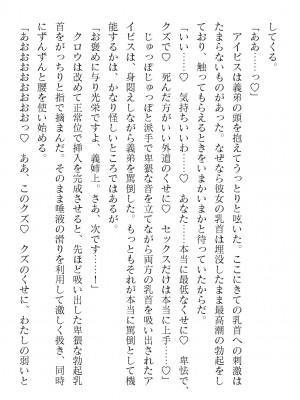 してくる。
「ああ……っ♡」
アイビスは義弟の頭を抱えてうっとりと呟いた。ここにきての乳首への刺激は
たまらないものがあった。なぜなら彼女の乳首は埋没したまま最高潮の勃起をし
ており、触ってもらえるときをいまかいまかと待っていたからだ。
「いい……♡　気持ちいいわ……♡　あなた……本当に最低なくせに♡　卑怯で、
クズで♡　死んだ方がいい外道のくせに♡　セックスだけは本当に上手……♡」
じゅっぽじゅっぽと派手で卑猥な音を立てながら両方の乳首を吸い出されたア
イビスは、身悶えしながら義弟を罵倒する。もっともそれが本当に罵倒として機
能するかは、かなり怪しいところではあるが。
「お褒めに与り光栄ですよ、義姉上。さあ、次です……！」
クロウは改めて正常位で挿入を完成させると、先ほど吸い出した卑猥な勃起乳
首をがっちりと指で摘まんだ。そのまま唾液の滑りを利用して激しく扱き、同時
にずんずんと腰を使い始める。
「あおおおおおおおおっ♡　ああ、このクズ♡　クズのくせに、わたしの弱いと